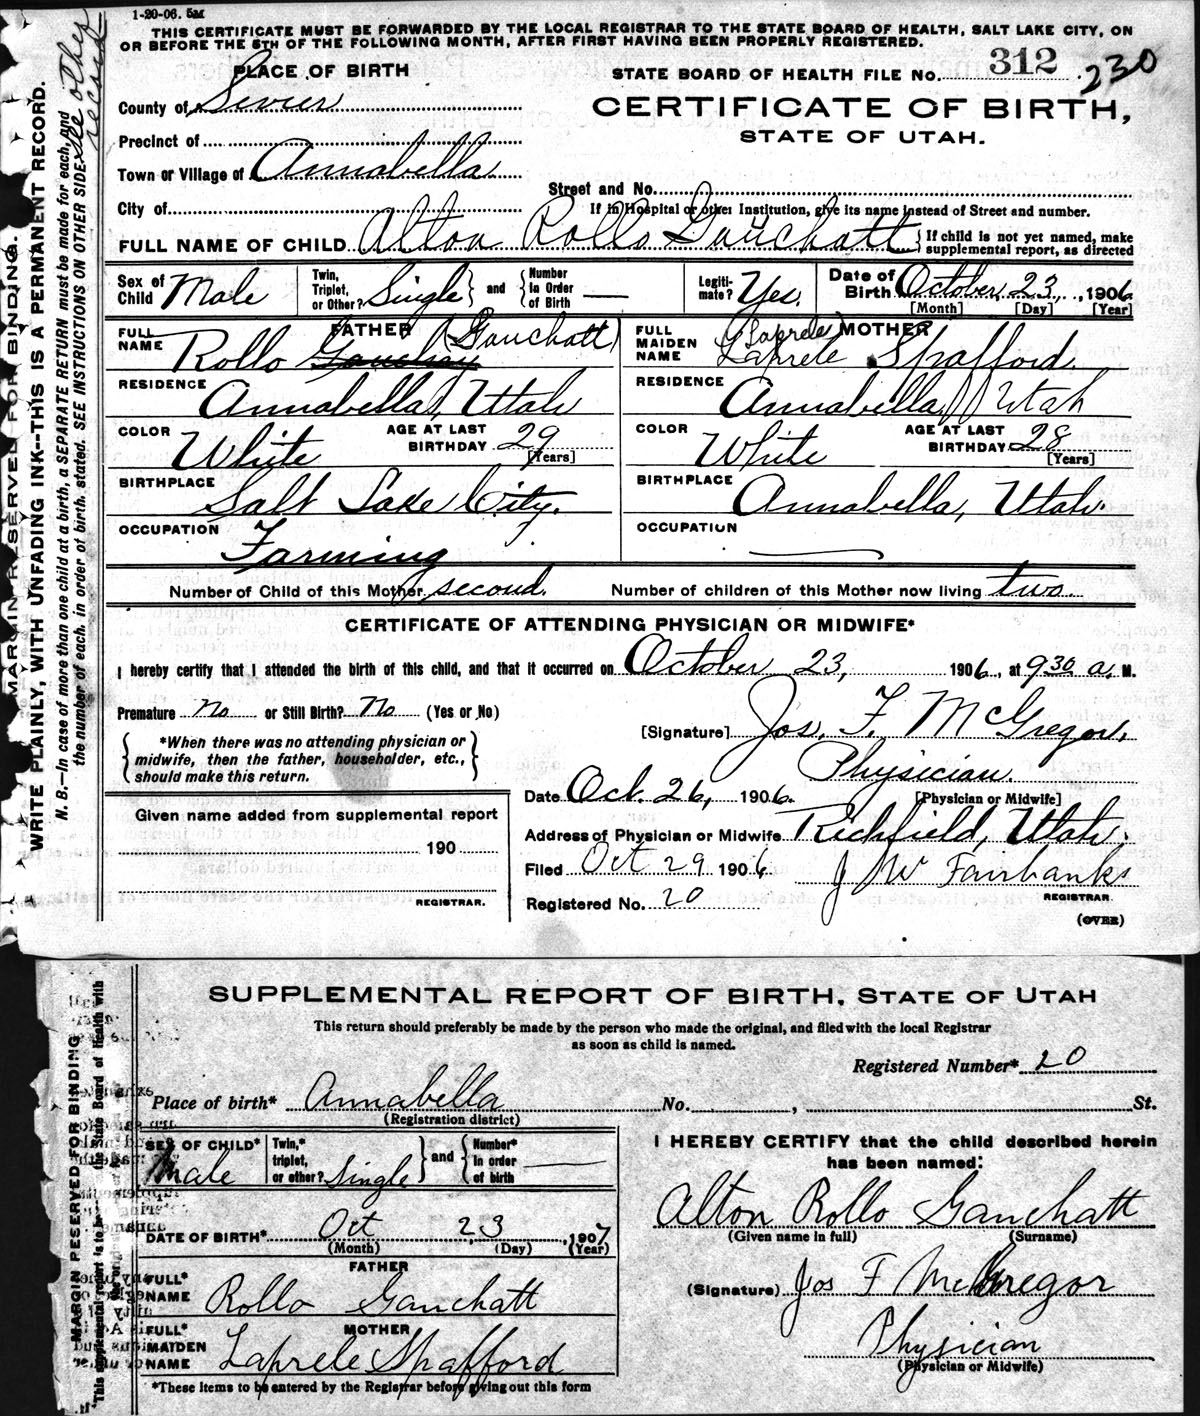 1-20-06. 5M
THIS CERTIFICATE MUST BE FORWARDED BY THE LOCAL REGISTRAR TO THE STATE BOARD OF HEALTH, SALT LAKE CITY, ON
OR BEFORE THE 5TH OF THE FOLLOWING MONTH, AFTER FIRST HAVING BEEN PROPERLY REGISTERED.
PLACE OF BIRTH
STATE BOARD OF HEALTH FILE No. 312 230
County of Sevier
CERTIFICATE OF BIRTH,
STATE OF UTAH.
Precinct of
Town or Village of Annabella
Street and No.
City of
If in Hospital or other Institution, give its name instead of Street and number.
FULL NAME OF CHILD Alton Rollo Gauchatt { If child is not yet named, make supplemental report, as directed
Sex of Child Male Twin, Triplet, or Other? Single } and { Number In Order of Birth — Legiti- mate? Yes. Date of Birth October 23, 1906
[Month] [Day] [Year]
FATHER
FULL NAME Rollo Gauchay (Gauchatt)
MOTHER
FULL MAIDEN NAME (Laprele) Laprele Spafford.
RESIDENCE Annabella, Utah
RESIDENCE Annabella, Utah
COLOR White AGE AT LAST BIRTHDAY 29 [Years]
COLOR White AGE AT LAST BIRTHDAY 28 [Years]
BIRTHPLACE Salt Lake City.
BIRTHPLACE Annabella, Utah.
OCCUPATION Farming
OCCUPATION —
Number of Child of this Mother second. Number of children of this Mother now living two
CERTIFICATE OF ATTENDING PHYSICIAN OR MIDWIFE*
I hereby certify that I attended the birth of this child, and that it occurred on October 23, 1906, at 9 30 a. M.
Premature No or Still Birth? No (Yes or No)
[Signature] Jos. F. McGregor,
Physician.
[Physician or Midwife]
*When there was no attending physician or
midwife, then the father, householder, etc.,
should make this return.
Date Oct. 26, 1906.
Given name added from supplemental report
190
REGISTRAR.
Address of Physician or Midwife Richfield, Utah.
Filed Oct 29 1906 J W Fairbanks
REGISTRAR.
Registered No. 20
(OVER)
MARGIN RESERVED FOR BINDING.
WRITE PLAINLY, WITH UNFADING INK--THIS IS A PERMANENT RECORD.
N. B.—In case of more than one child at a birth, a SEPARATE RETURN must be made for each, and
the number of each, in order of birth, stated. SEE INSTRUCTIONS ON OTHER SIDE.
see other record
SUPPLEMENTAL REPORT OF BIRTH, STATE OF UTAH
This return should preferably be made by the person who made the original, and filed with the local Registrar
as soon as child is named.
Registered Number* 20
Place of birth* Annabella No. , St.
(Registration district)
SEX OF CHILD* Male Twin,* triplet, or other? Single } and { Number* in order of birth —
DATE OF BIRTH* Oct 23 1907
(Month) (Day) (Year)
FATHER
FULL* NAME Rollo Gauchatt
MOTHER
FULL* MAIDEN NAME Laprele Spafford
*These items to be entered by the Registrar before giving out this form
I HEREBY CERTIFY that the child described herein
has been named:
Alton Rollo Gauchatt
(Given name in full) (Surname)
(Signature) Jos F McGregor
Physician
(Physician or Midwife)
MARGIN RESERVED FOR BINDING